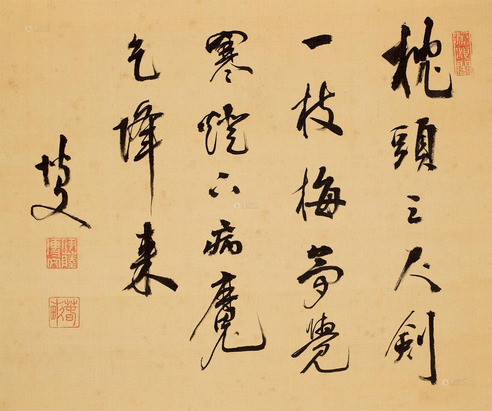 枕頭三尺劍
一枝梅夢覺
寒燈下病魔
乞降来